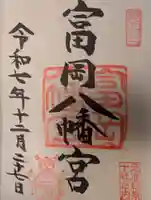 富岡八幡宮
令和七年十二月二十七日